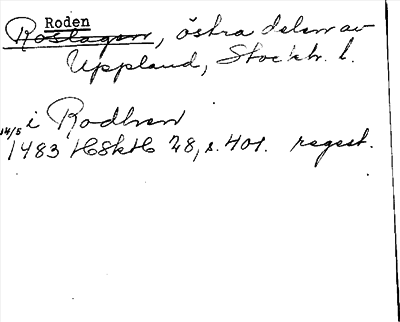 Roden
Roslagen, östra delen av
Uppland, Stockh. l.
i Rodhen
14/5 1483 HSkH 28, s. 401. regest.